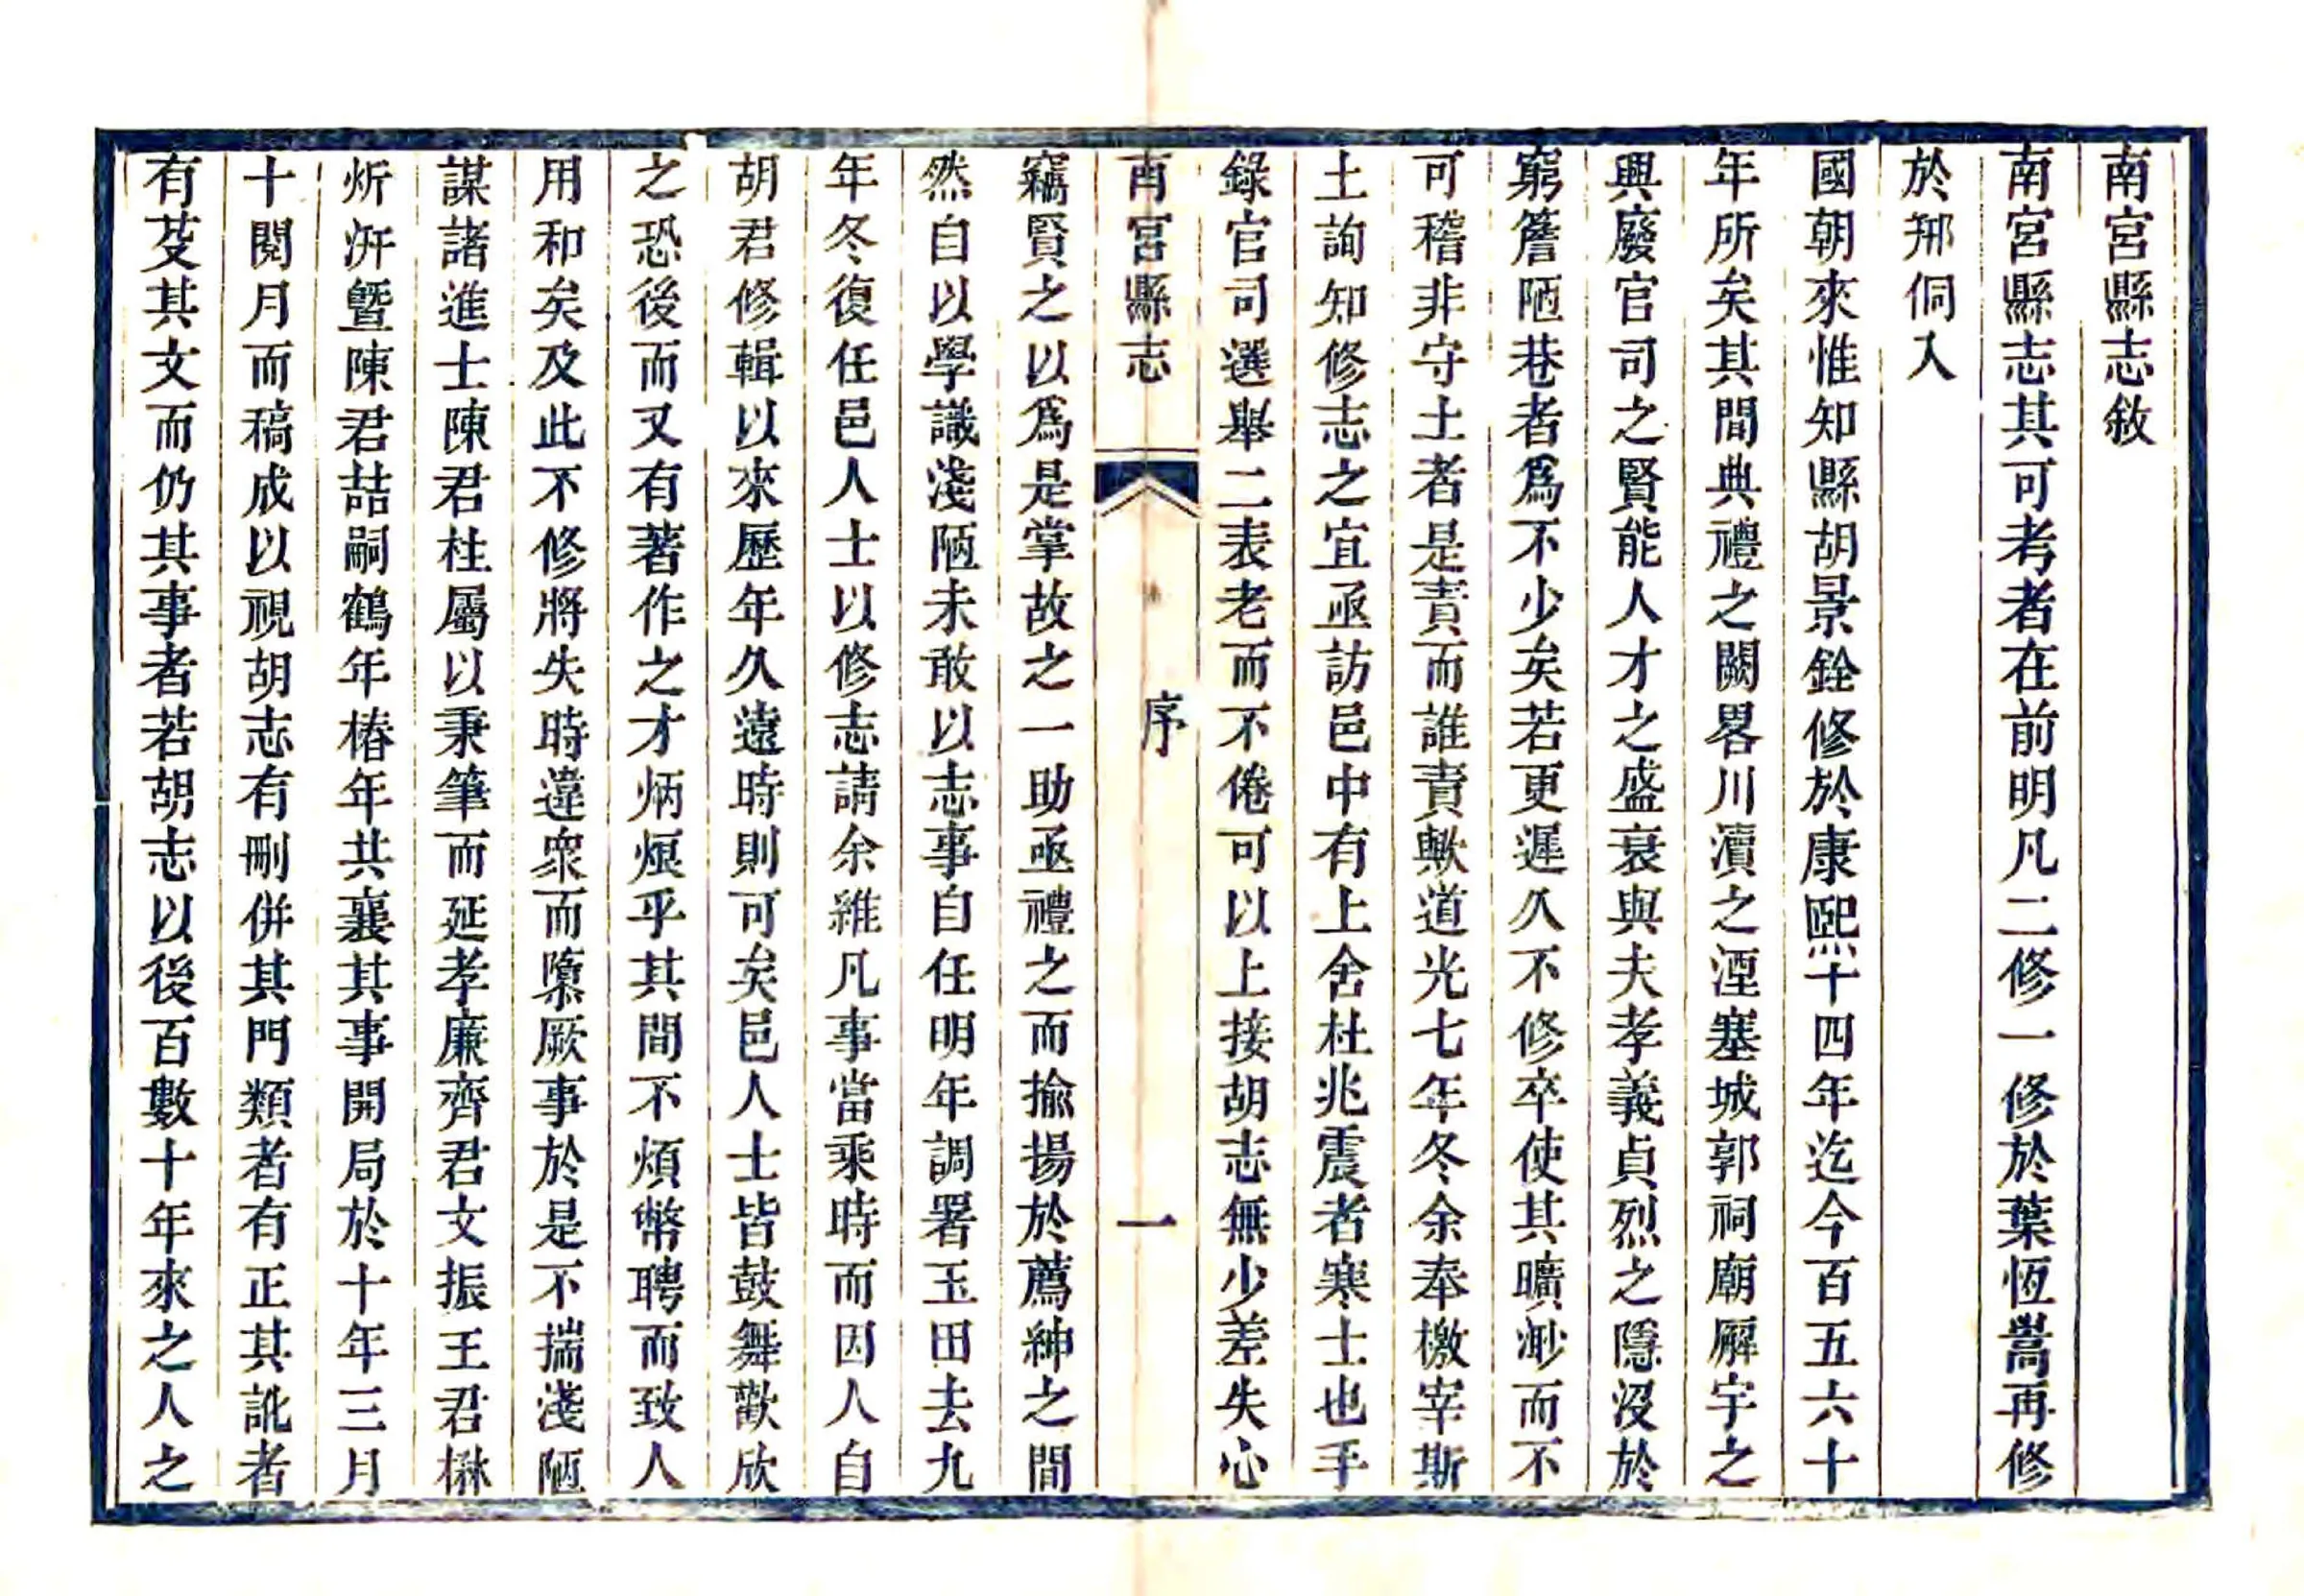 南宮縣志敘
南宮縣志其可考者在前明凡二修一修於葉恆嵩再修
於邢侗入
國朝來惟知縣胡景銓修於康熙十四年迄今百五六十
年所矣其間典禮之闕畧川瀆之湮塞城郭祠廟廨宇之
興廢官司之賢能人才之盛衰與夫孝義貞烈之隱沒於
窮簷陋巷者爲不少矣若更遲久不修卒使其曠渺而不
可稽非守土者是責而誰責歟道光七年冬余奉檄宰斯
土詢知修志之宜亟訪邑中有上舍杜兆震者寒士也手
錄官司選舉二表老而不倦可以上接胡志無少差失心
南宮縣志
序
一
竊賢之以爲是掌故之一助亟禮之而揄揚於薦紳之間
然自以學識淺陋未敢以志事自任明年調署玉田去九
年冬復任邑人士以修志請余維凡事當乘時而因人自
胡君修輯以來歷年久遠時則可矣邑人士皆鼓舞歡欣
之恐後而又有著作之才炳烺乎其間不煩幣聘而致人
用和矣及此不修將失時違衆而隳厥事於是不揣淺陋
謀諸進士陳君柱屬以秉筆而延孝廉齊君文振王君楙
炘汧暨陳君喆嗣鶴年椿年共襄其事開局於十年三月
十閱月而稿成以視胡志有刪併其門類者有正其訛者
有芟其文而仍其事者若胡志以後百數十年來之人之